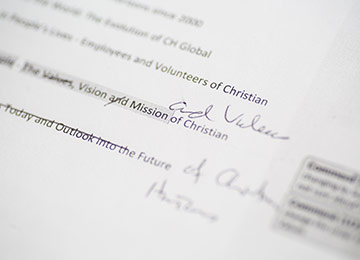 since 2000
World: The Evolution of CH Global
People's Lives - Employees and Volunteers of Christian
The Values, Vision and Mission of Christian
and Values
Today and Outlook into the Future
of